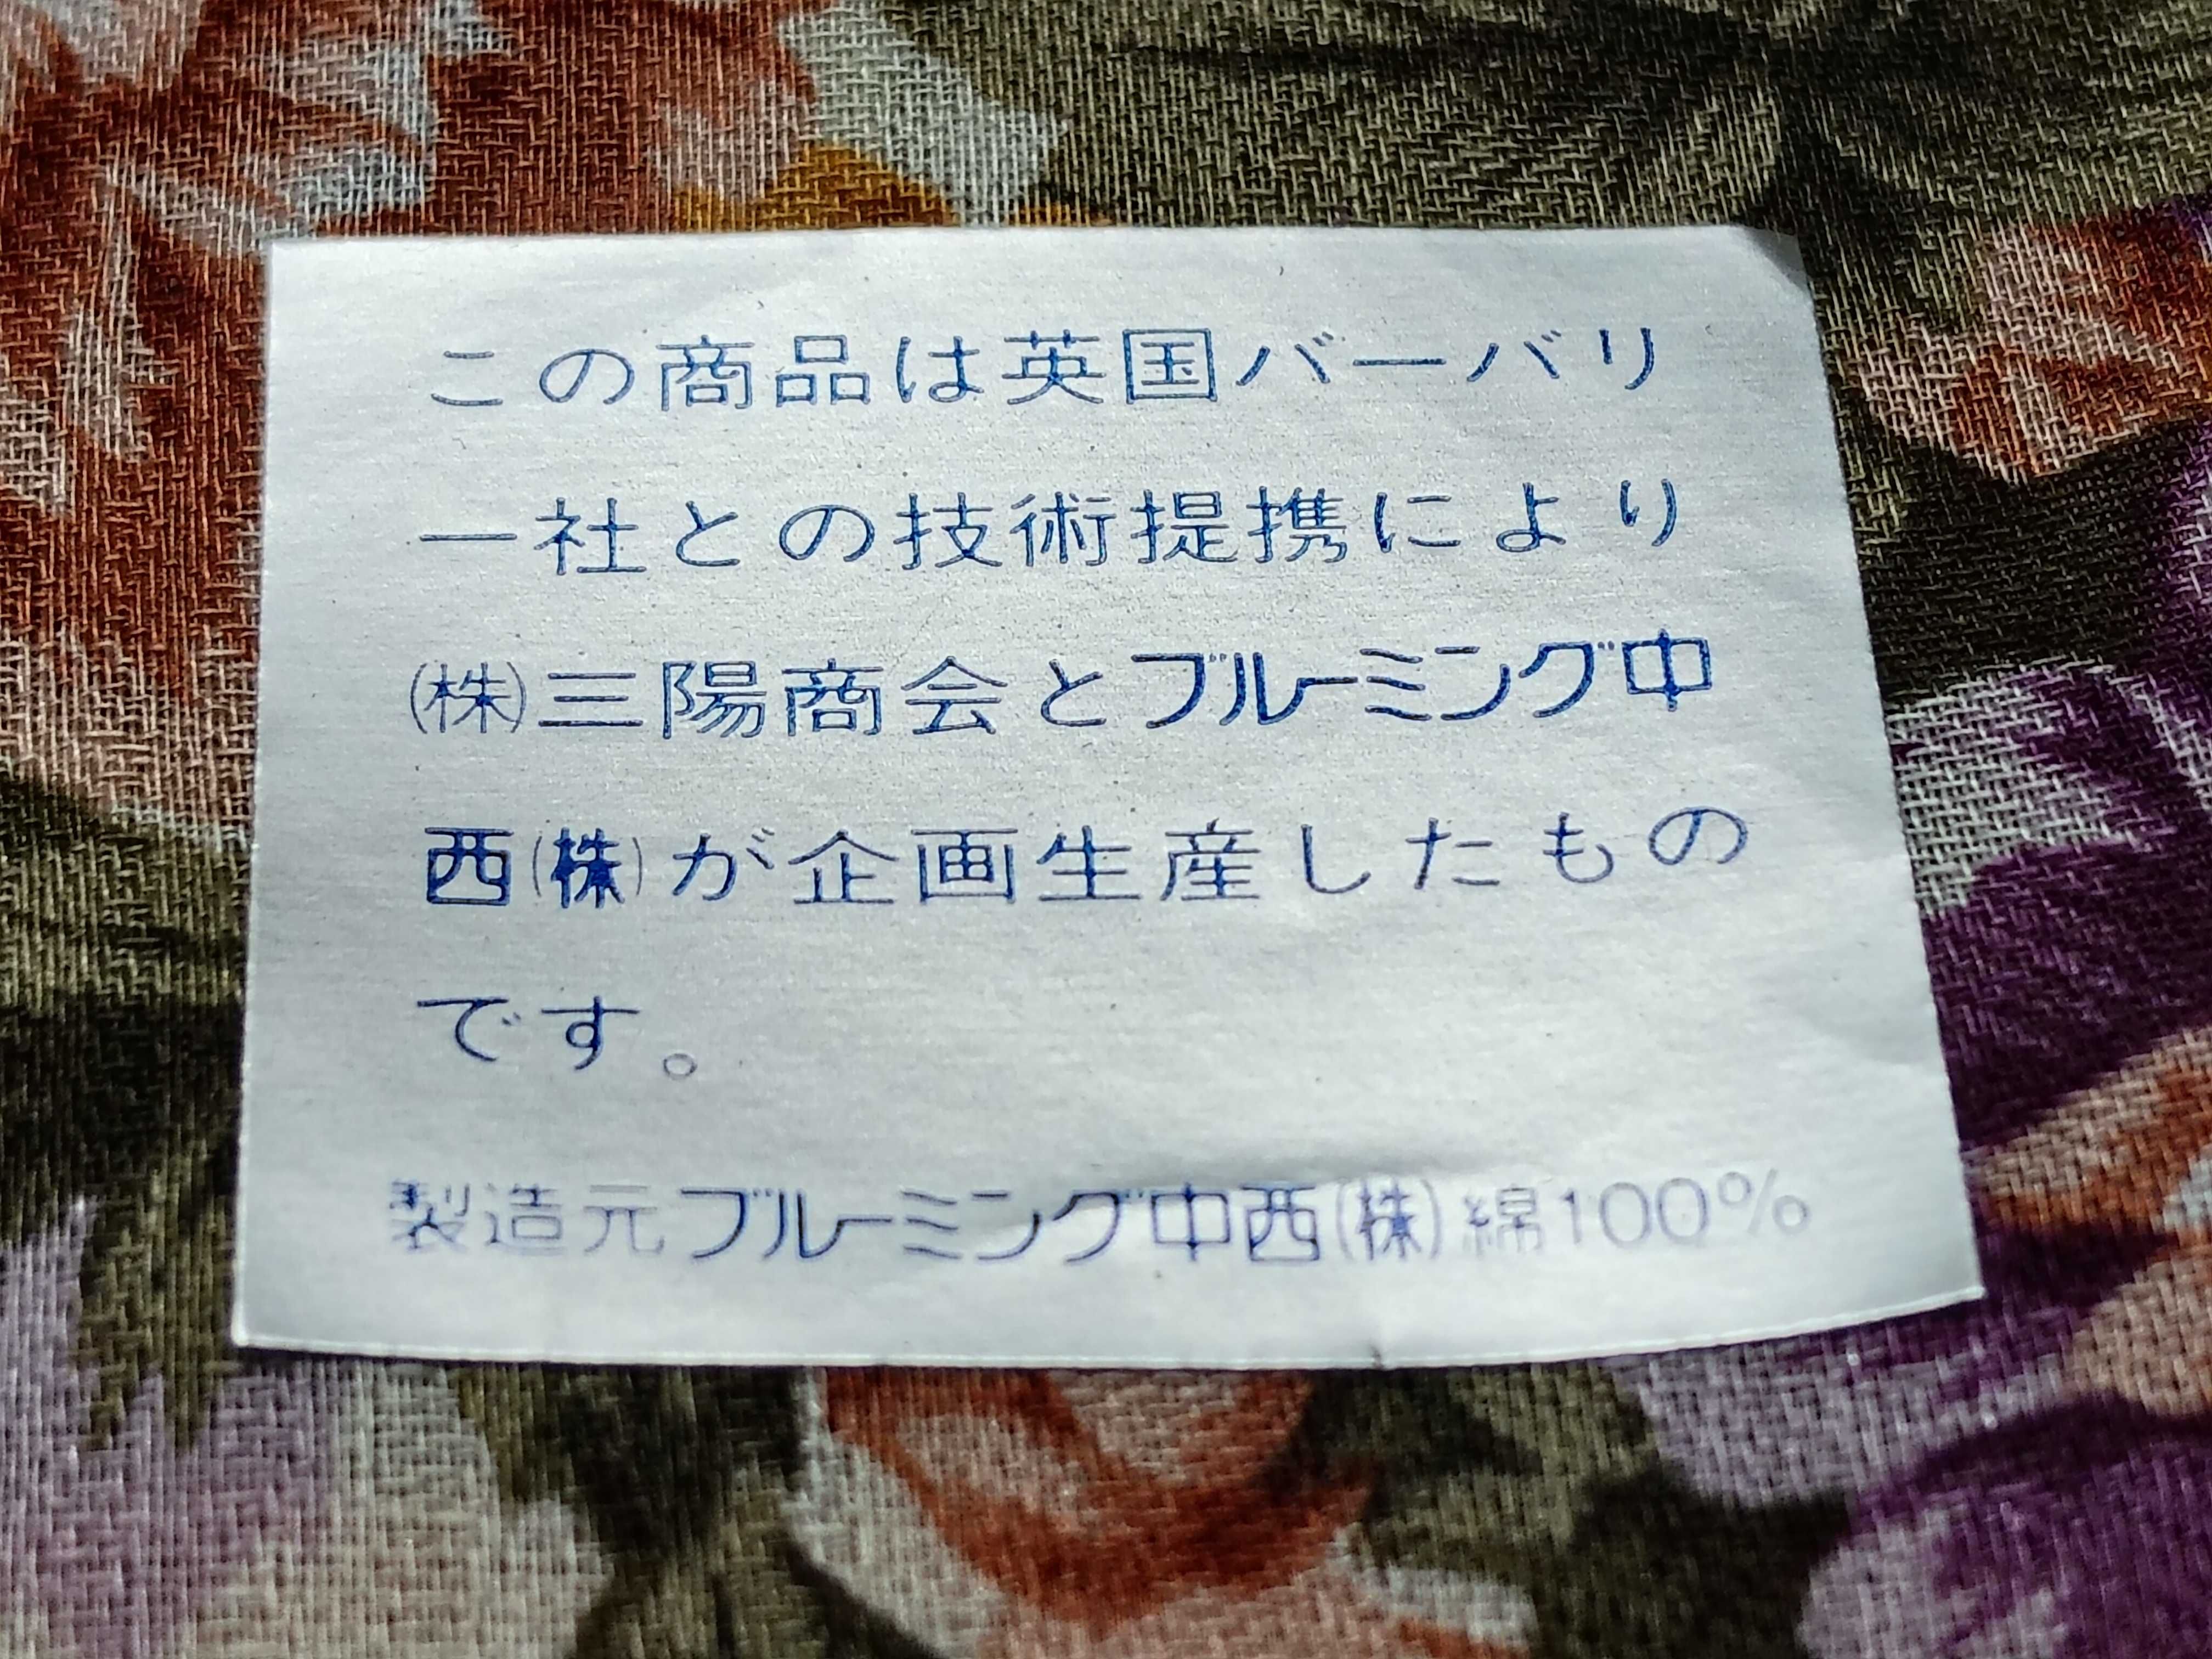 この商品は英国バーバリ
ー社との技術提携により
㈱三陽商会とブルーミング中
西㈱が企画生産したもの
です。
製造元ブルーミング中西㈱綿100%